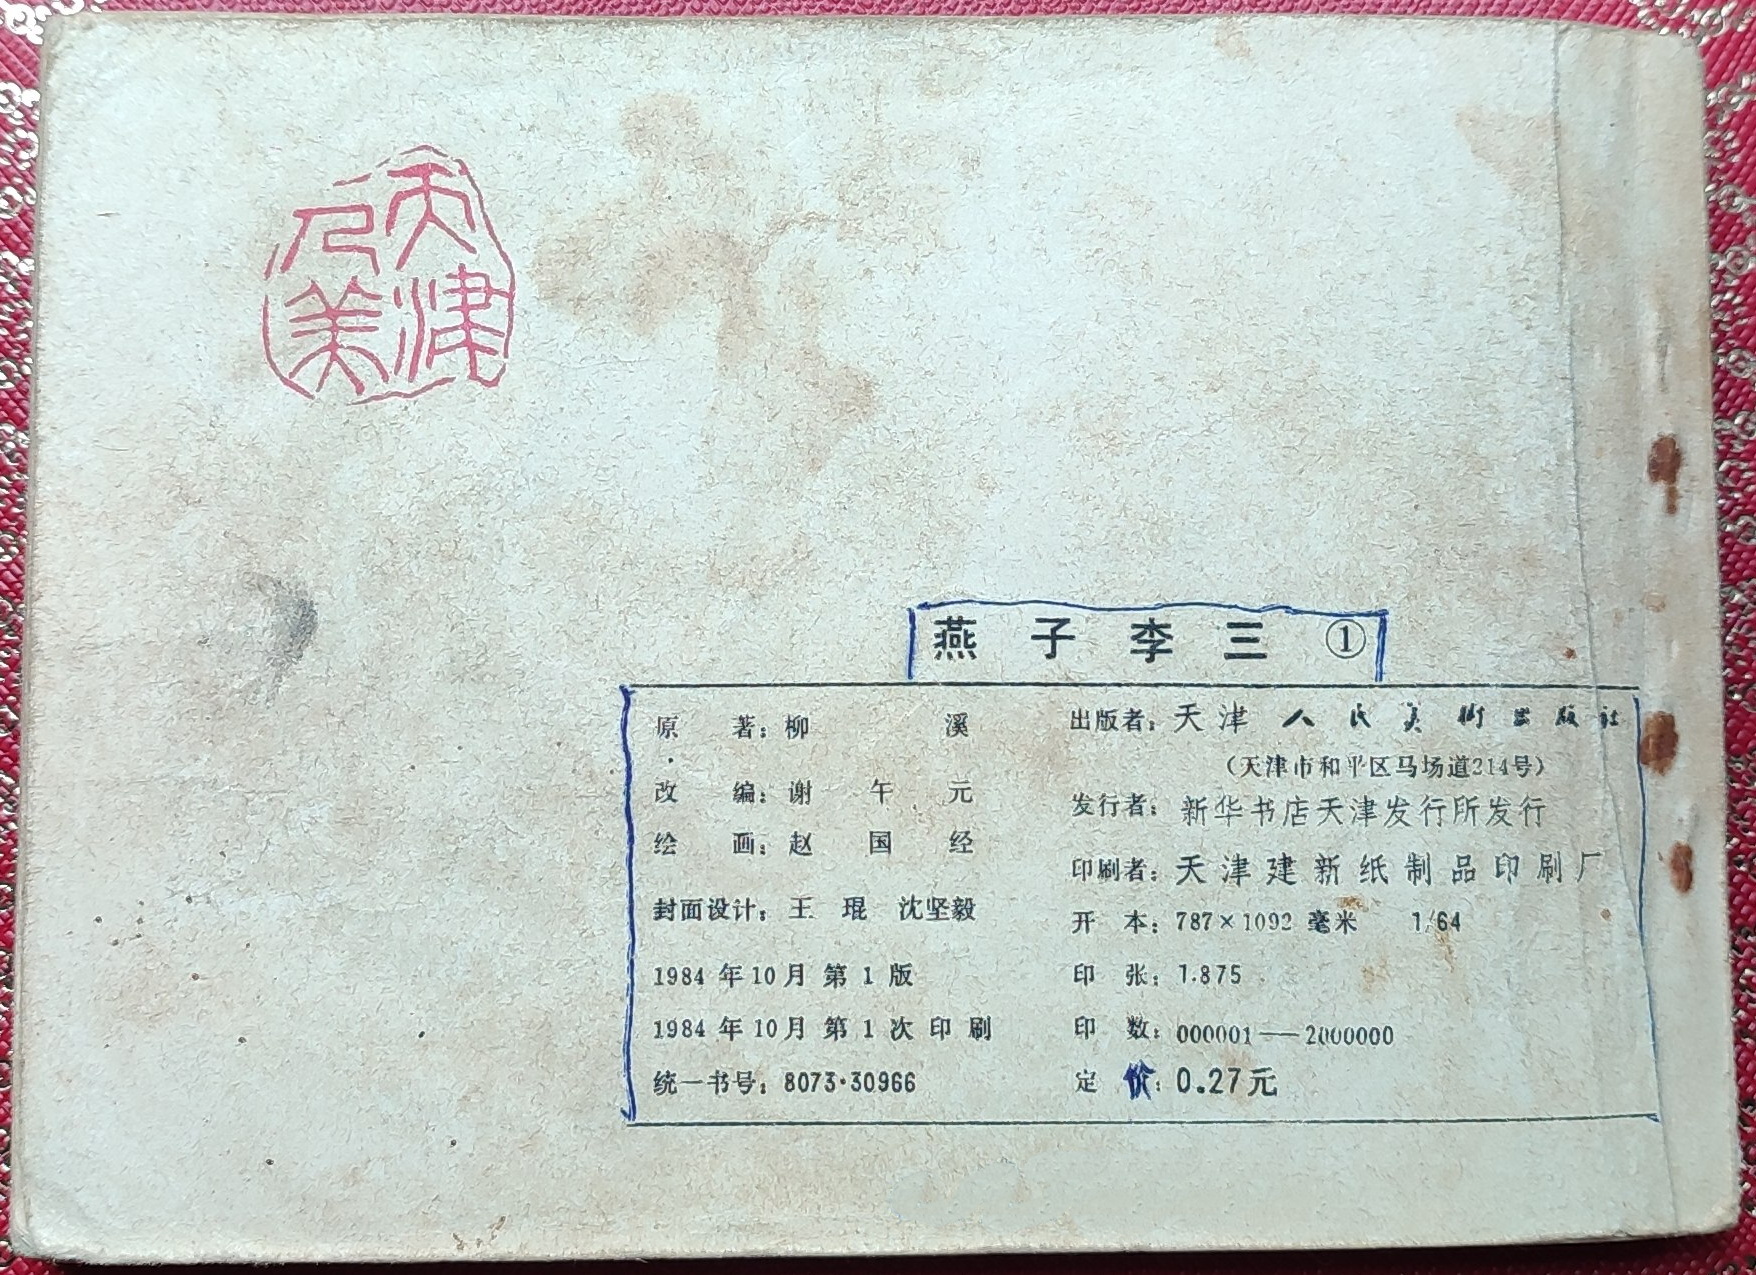 天津
人美
燕子李三①
原著：柳溪
改编：谢午元
绘画：赵国经
封面设计：王琨 沈坚毅
1984年10月第1版
1984年10月第1次印刷
统一书号：8073·30966
出版者：天津人民美术出版社
（天津市和平区马场道214号）
发行者：新华书店天津发行所发行
印刷者：天津建新纸制品印刷厂
开本：787×1092毫米 1/64
印张：1.875
印数：000001—2000000
定价：0.27元